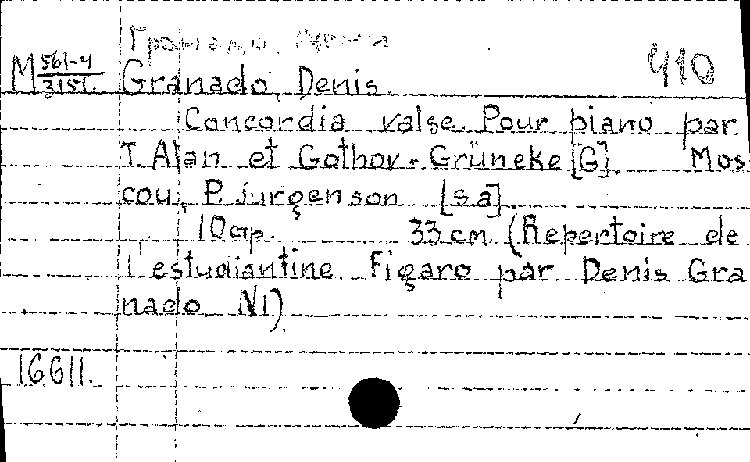 Гранадо, Денис
410
М 561-4/3151. Granado, Denis.
Concordia valse. Pour piano par
T. Alan et Gothov-Grüneke [G]. Mos
cou, P. Jurgenson [s a].
10 ср. 33 cm (Repertoire de
l'estudiantine Figaro par Denis Gra
nado N1)
16611.